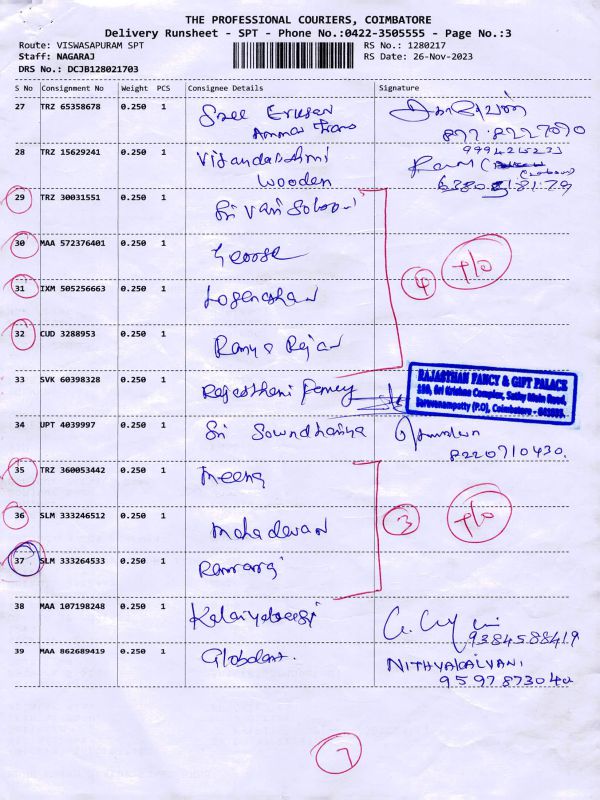 THE PROFESSIONAL COURIERS, COIMBATORE
Delivery Runsheet - SPT - Phone No.:0422-3505555 - Page No.:3
Route: VISWASAPURAM SPT
RS No.: 1280217
Staff: NAGARAJ
RS Date: 26-Nov-2023
DRS No.: DCJB128021703
S No Consignment No Weight PCS Consignee Details Signature
27 TRZ 65358678 0.250 1 Sree
Ammas Trans
28 TRZ 15629241 0.250 1
Wooden
29 TRZ 30031551 0.250 1 Sri Vari
30 MAA 572376401 0.250 1
31 IXM 505256663 0.250 1
4 T/O
32 CUD 3288953 0.250 1 Ramya Rajan
33 SVK 60398328 0.250 1 Rajasthani Fancy
RAJASTHAN FANCY & GIFT PALACE
Sri Krishna Complex, Sathy Main Road,
Saravanampatty (P.O), Coimbatore - 641035.
34 UPT 4039997 0.250 1 Sri Sowndhariya
8220710430.
35 TRZ 360053442 0.250 1 Meena
36 SLM 333246512 0.250 1 Mahadevan
3 T/O
37 SLM 333264533 0.250 1
38 MAA 107198248 0.250 1
9384588419
39 MAA 862689419 0.250 1 Globalant.
NITHYAKALYANI
9597873040
7